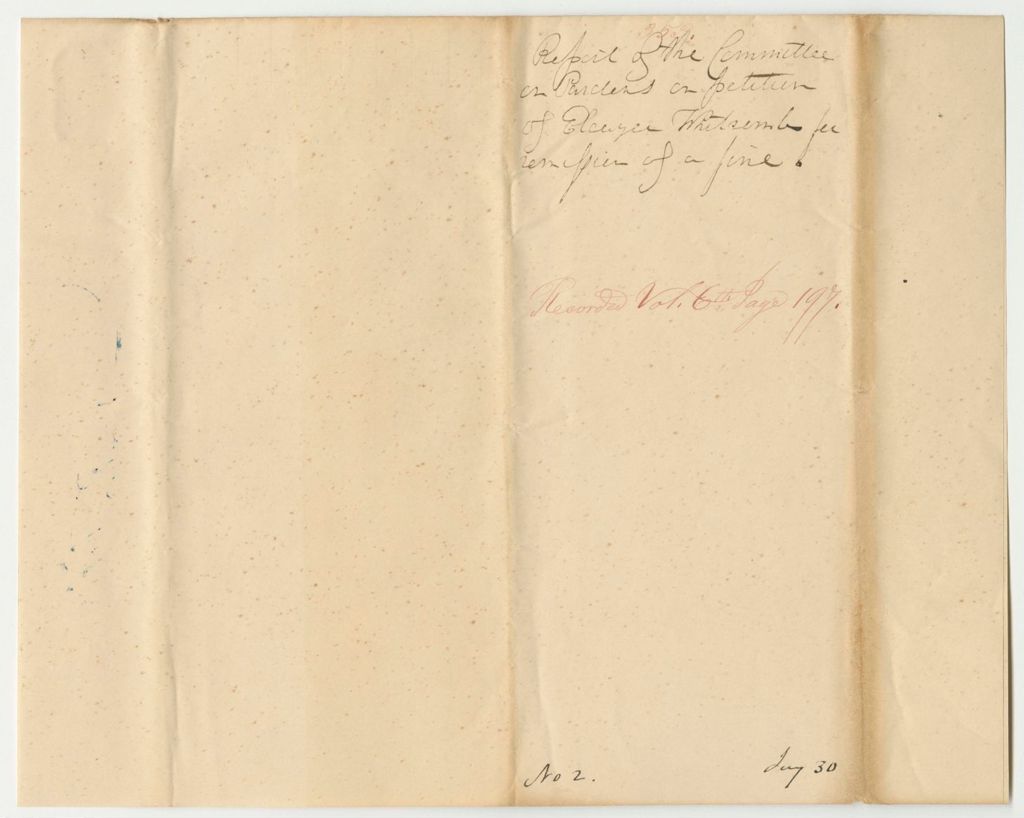 Report of the Committee
on Pardons on petition
of Eleazer Whitcomb for
remission of a fine.
Recorded Vol. 6th. Page 197.
No 2.
30